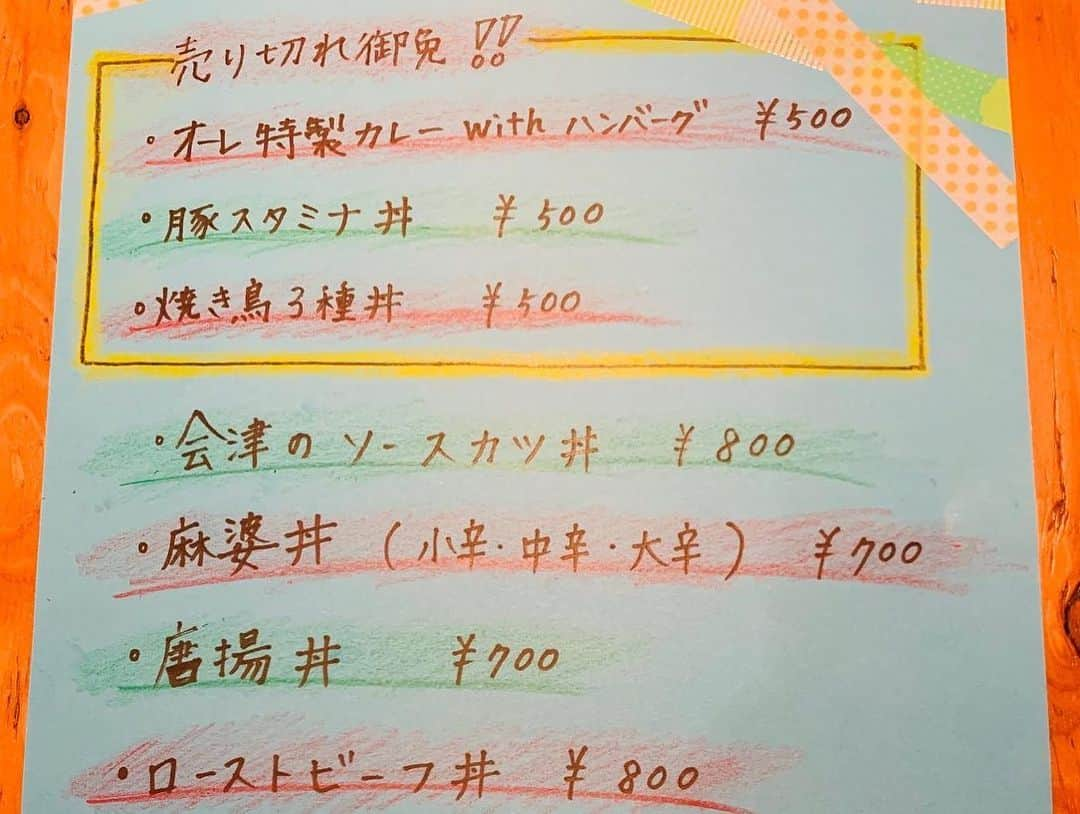 売り切れ御免!!
・オーレ特製カレー with ハンバーグ ¥500
・豚スタミナ丼 ¥500
・焼き鳥3種丼 ¥500
・会津のソースカツ丼 ¥800
・麻婆丼 (小辛・中辛・大辛) ¥700
・唐揚丼 ¥700
・ローストビーフ丼 ¥800